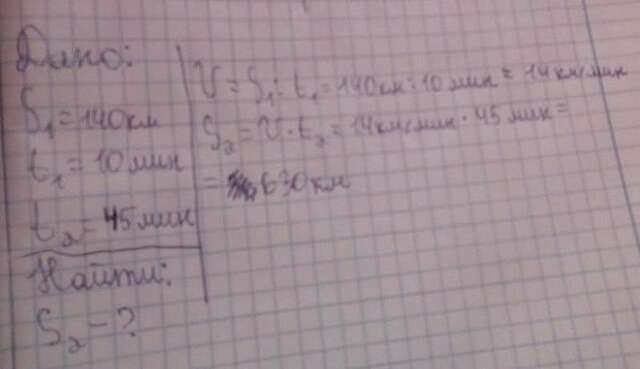 Дано:
S₁=140км
t₁=10мин
t₂=45мин
Найти:
S₂-?
V=S₁:t₁=140км:10мин=14км/мин
S₂=V·t₂=14км/мин·45мин=
=630км